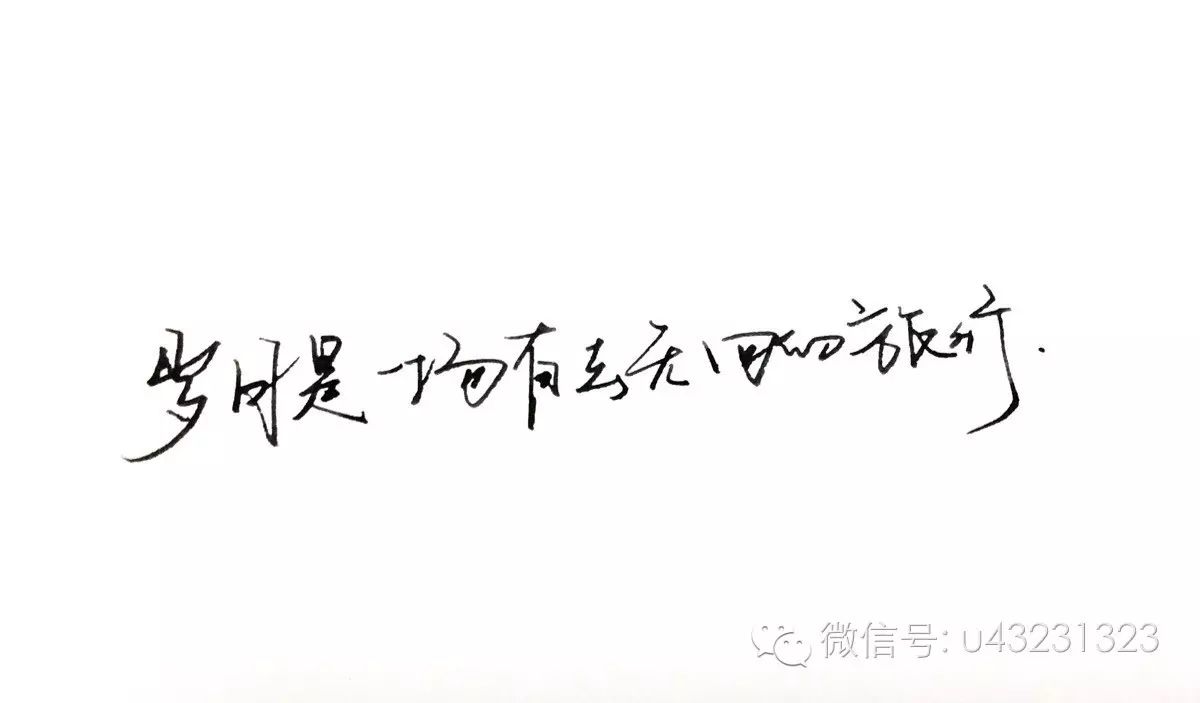 岁月是一场有去无回的旅行.
微信号: u43231323